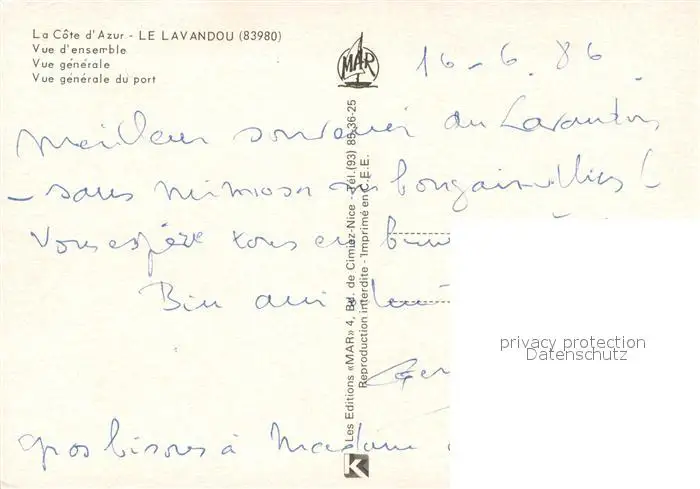 La Côte d'Azur - LE LAVANDOU (83980)
Vue d'ensemble
Vue générale
Vue générale du port
MAR
16-6.86
Meilleur souvenir du Lavandou
- sans mimosa ni bougainvilliers !
Vous espère tous en
Bien ami
gros bisous à Madame
Les Editions «MAR» 4, Bd. de Cimiez-Nice - Tél.(93) 85-36-25
Reproduction interdite - Imprimé en C.E.E.
K
privacy protection
Datenschutz